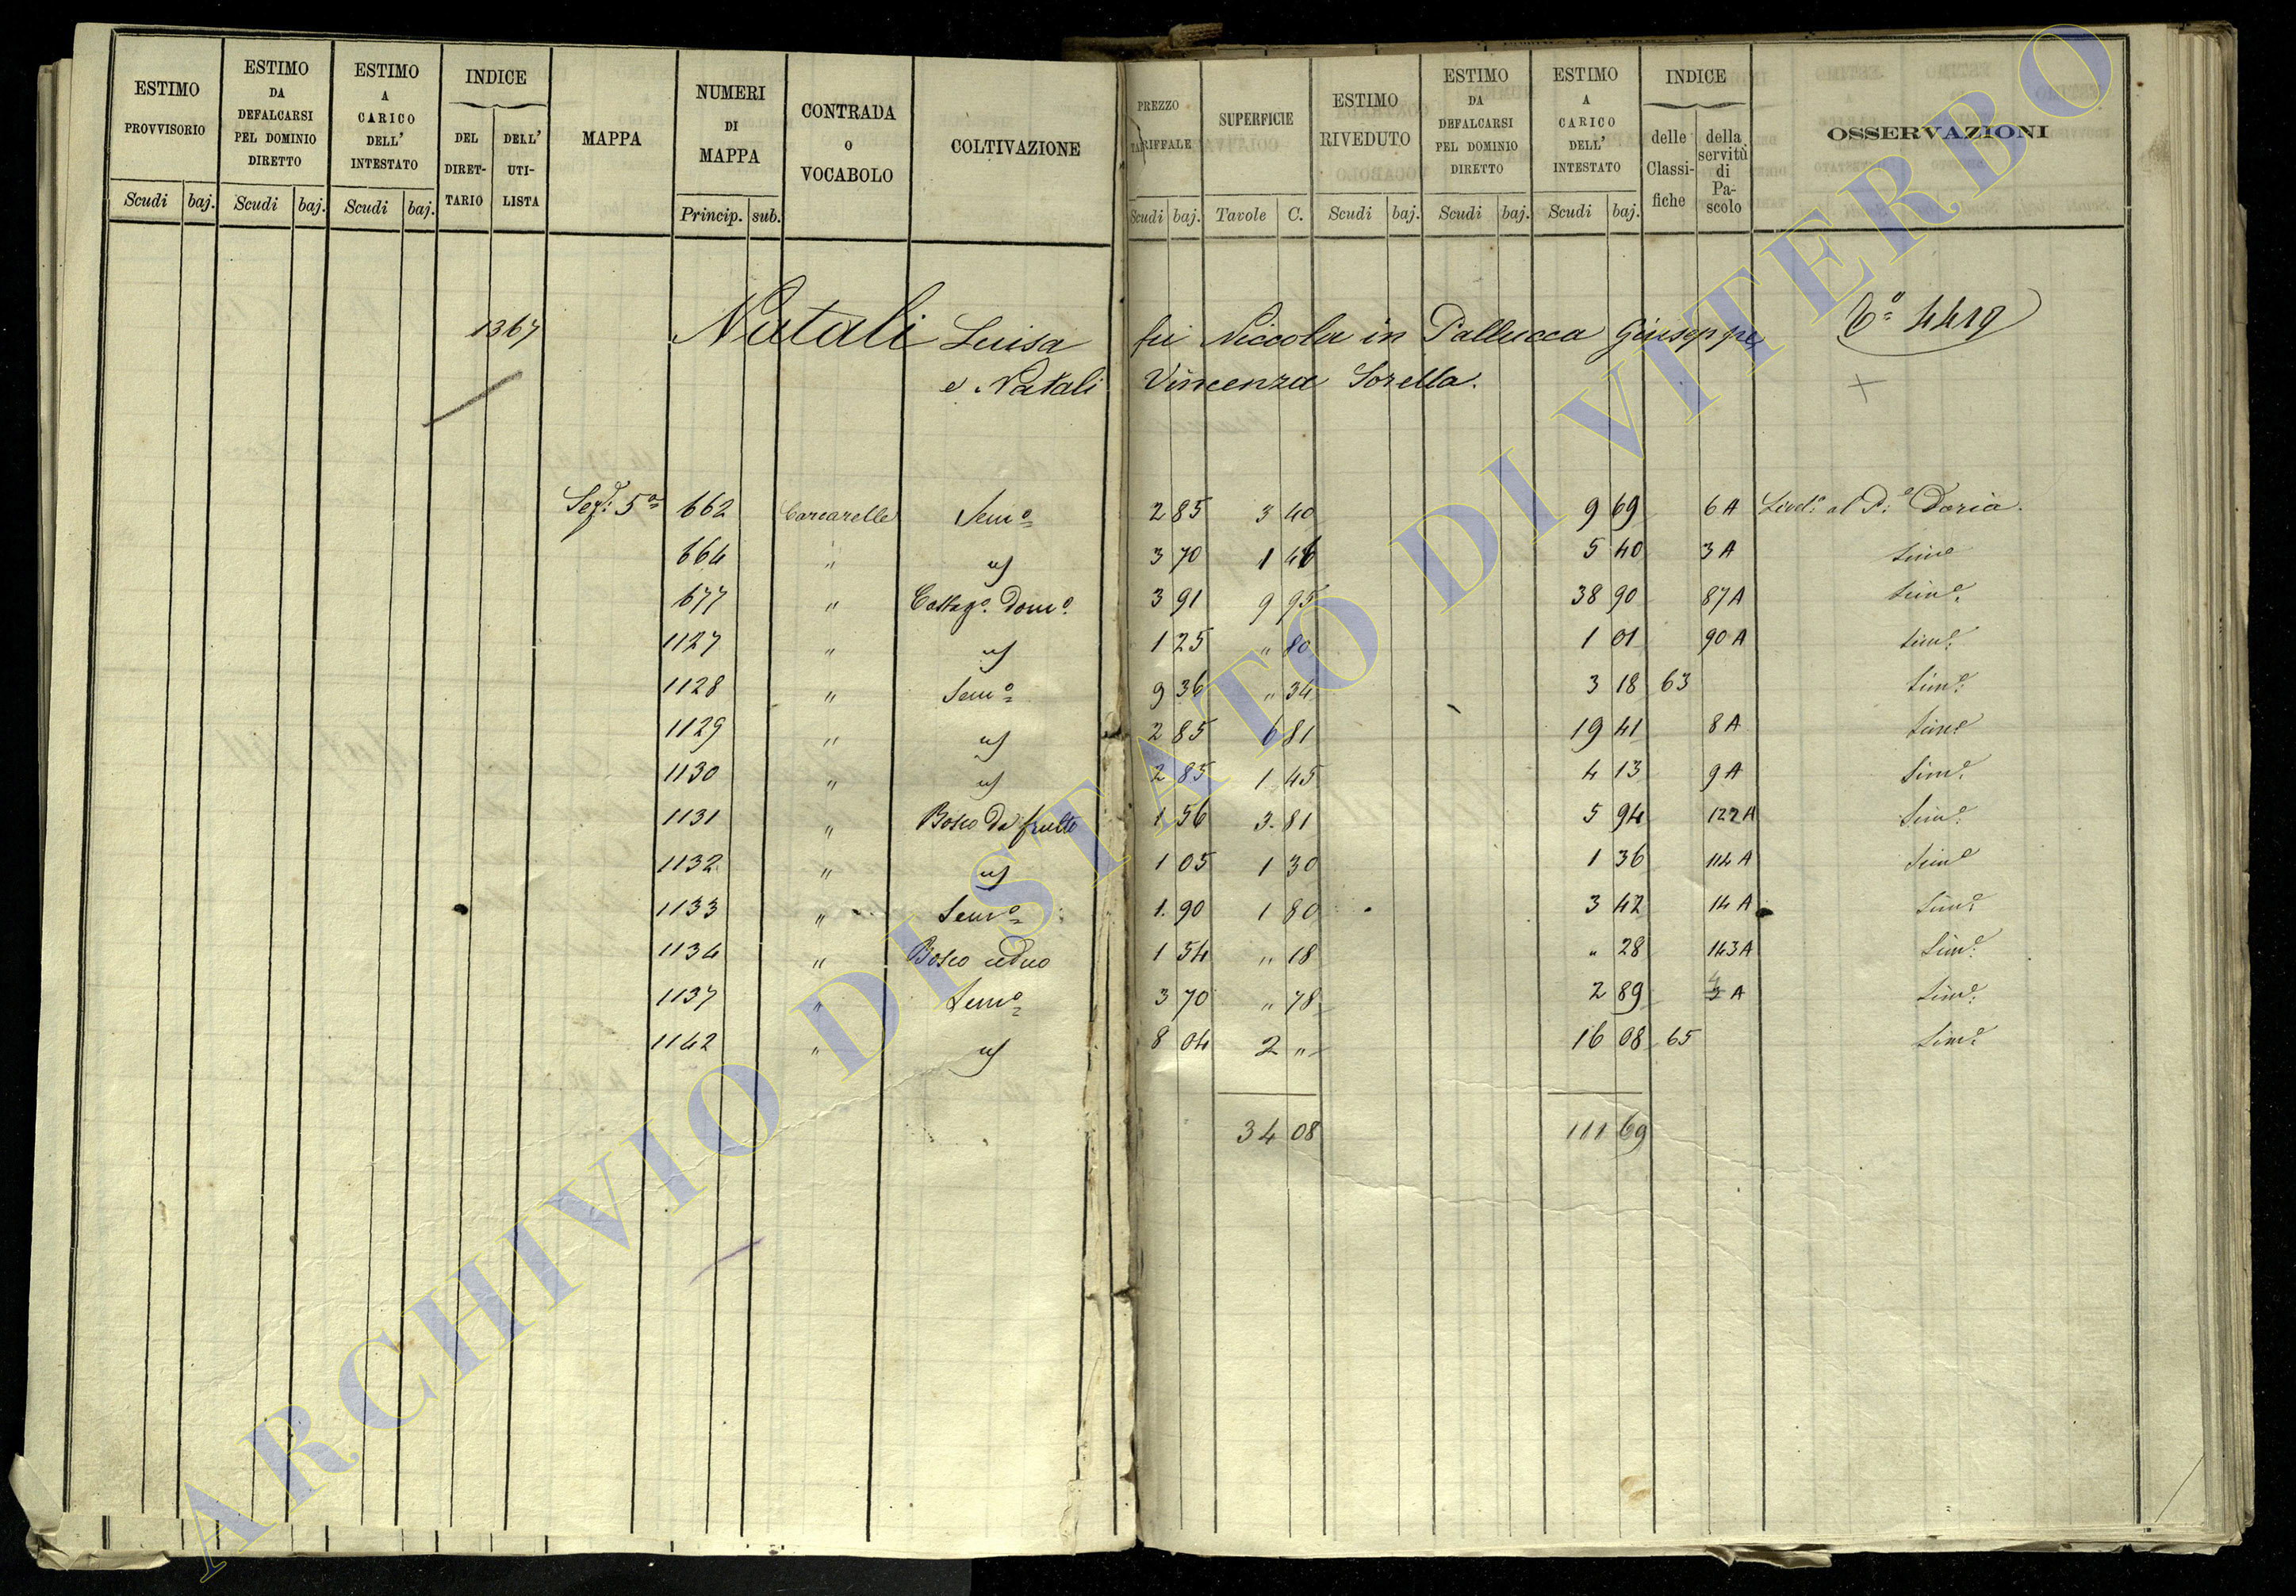 ESTIMO PROVVISORIO Scudi baj.
ESTIMO DA DEFALCARSI PEL DOMINIO DIRETTO Scudi baj.
ESTIMO A CARICO DELL' INTESTATO Scudi baj.
INDICE DEL DIRET-TARIO DELL' UTI-LISTA
MAPPA
NUMERI DI MAPPA Princip. sub.
CONTRADA o VOCABOLO
COLTIVAZIONE
PREZZO TARIFFALE Scudi baj.
SUPERFICIE Tavole C.
ESTIMO RIVEDUTO Scudi baj.
ESTIMO DA DEFALCARSI PEL DOMINIO DIRETTO Scudi baj.
ESTIMO A CARICO DELL' INTESTATO Scudi baj.
INDICE delle Classi-fiche della servitù di Pa-scolo
OSSERVAZIONI
1367 Natali Luisa fu Niccola in Pallucca Giuseppe 4419
e Natali Vincenza Sorella.
Sez. 5a 662 Carcarelle Semo 2 85 3 40 9 69 6 A Livel. al Pe Doria.
664 " " 3 70 1 46 5 40 3 A Simo
677 " Castago. domo. 3 91 9 95 38 90 87 A Simo.
1127 " " 1 25 " 80 1 01 90 A Simo.
1128 " Semo 9 36 " 34 3 18 63 Simo.
1129 " " 2 85 6 81 19 41 8 A Simo
1130 " " 2 85 1 45 4 13 9 A Simo.
1131 " Bosco da frutto 1 56 3. 81 5 94 122 A Simo.
1132 " " 1 05 1 30 1 36 114 A Simo
1133 " Semo 1. 90 1 80 3 42 14 A Simo
1134 " Bosco ceduo 1 54 " 18 " 28 143 A Simo.
1137 " Semo 3 70 " 78 2 89 A Simo.
1142 " " 8 04 2 " 16 08 65 Simo.
34 08 111 69
ARCHIVIO DI STATO DI VITERBO